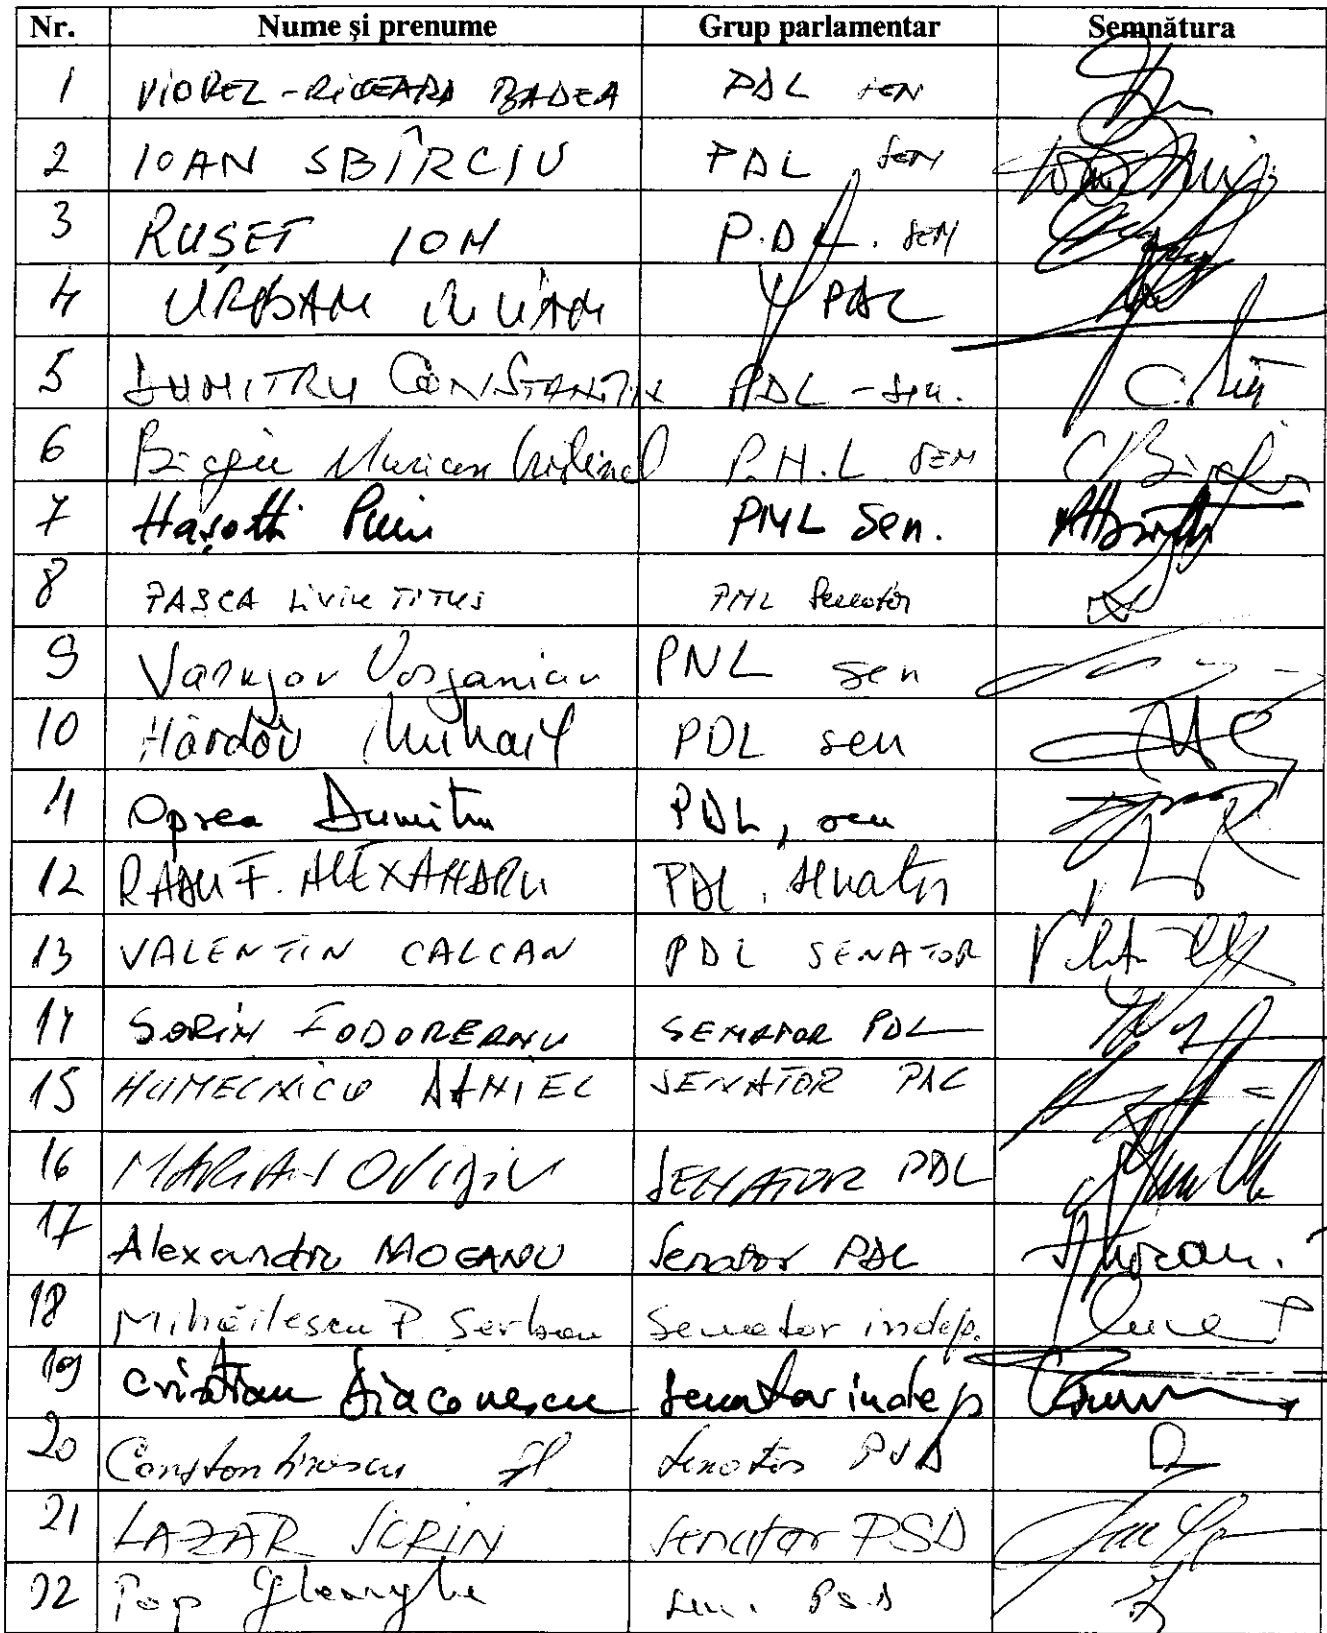 Nr. Nume și prenume Grup parlamentar Semnătura
1 VIOREL-RICEARD BADEA PDL SEN
2 IOAN SBÎRCIU PDL SEN
3 RUȘET ION P.D.L. SEN
4 URBAN IULIAN PDL
5 DUMITRU CONSTANTIN PDL - Sen.
6 P.N.L SEN
7 Hașotti Puiu PNL Sen.
8 PAȘCA LIVIU TITUS PNL Senator
9 Varujan Vosganian PNL sen
10 Hărdău Mihail PDL sen
11 Oprea Dumitru PDL, sen
12 RADU F. ALEXANDRU PDL, senator
13 VALENTIN CALCAN PDL SENATOR
14 SORIN FODOREANU SENATOR PDL
15 HUMELNICU DANIEL SENATOR PDL
16 MARIAN OVIDIU SENATOR PDL
17 Alexandru MOCANU Senator PDL
18 Mihăilescu P Serban Senator indep.
19 Cristian Diaconescu Senator indep
20 Constantinescu Fl Senator PSD
21 LAZĂR SORIN Senator PSD
22 Pop Gheorghe Sen. PSD